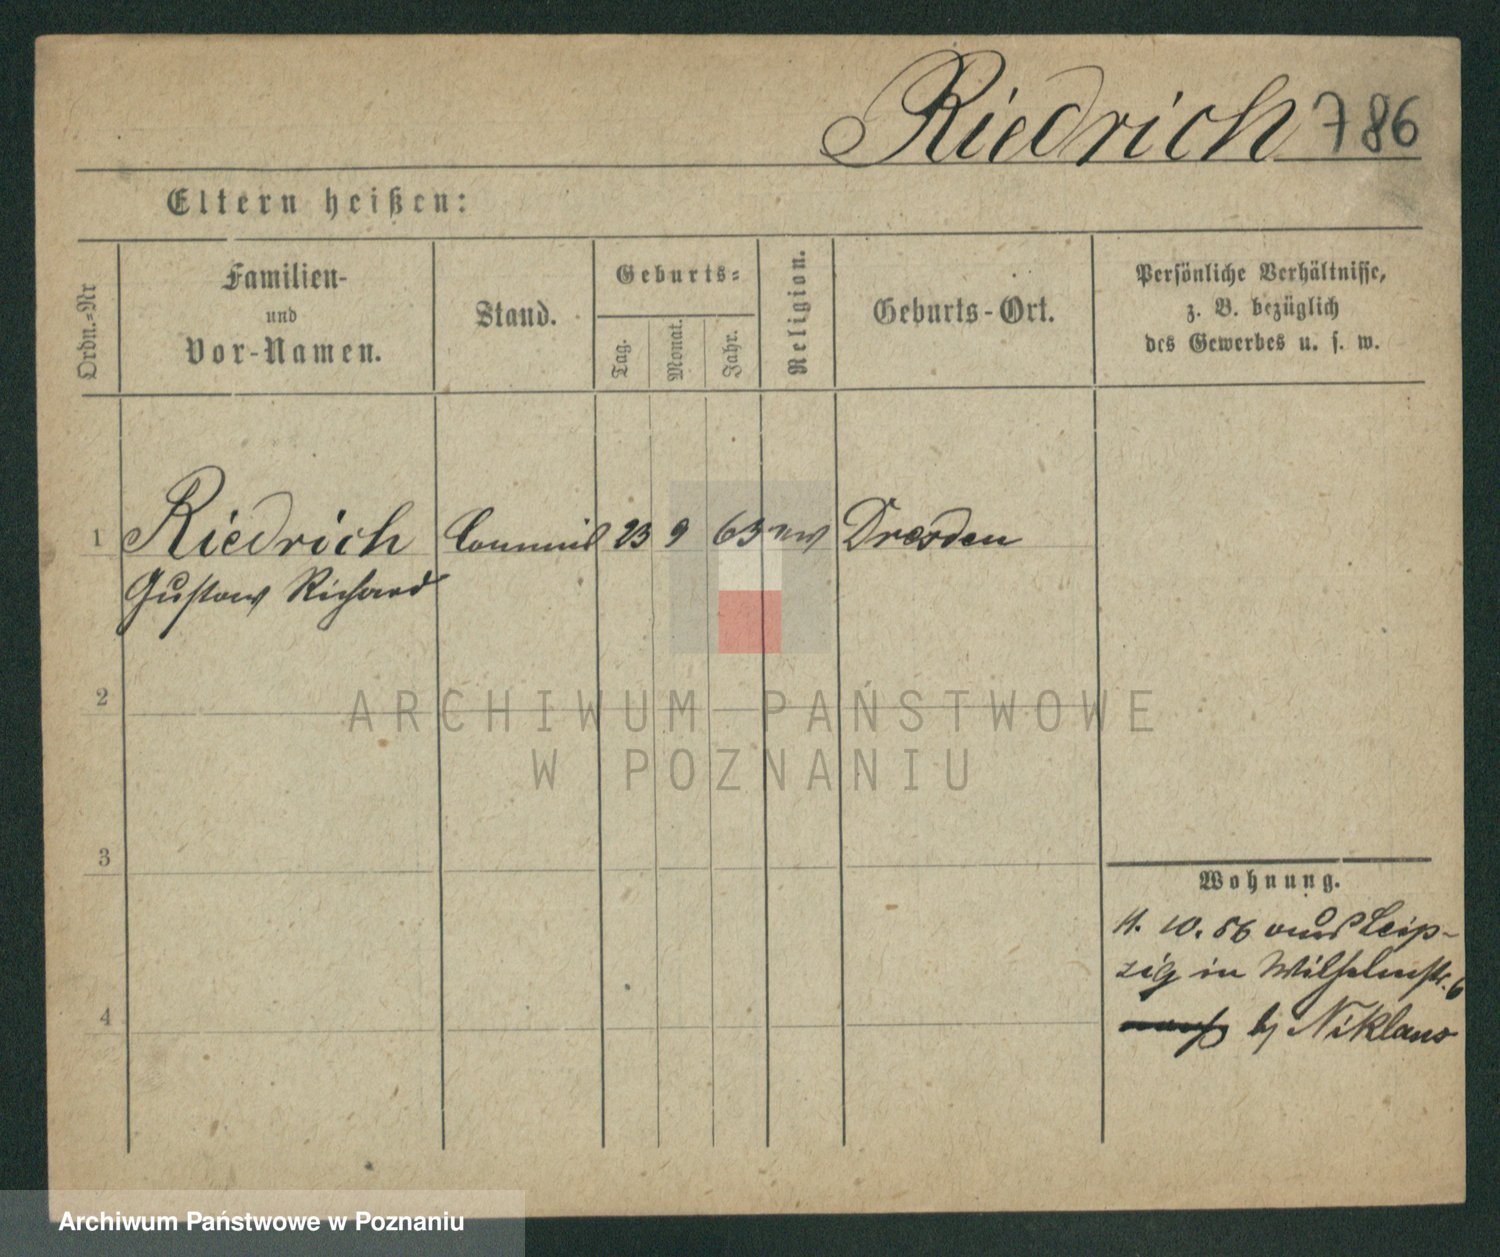 Riedrich 786
Eltern heißen:
Ordn.-Nr
Familien-
und
Vor-Namen.
Stand.
Geburts-
Tag.
Monat.
Jahr.
Religion.
Geburts-Ort.
Persönliche Verhältnisse,
z. B. bezüglich
des Gewerbes u. s. w.
1 Riedrich Commis 23 9 63 Dresden
Gustav Richard
2
3
4
Wohnung.
11. 10. 86 aus Leip-
zig in Wilhelmstr. 6
bj Niklaus
ARCHIWUM PAŃSTWOWE
W POZNANIU
Archiwum Państwowe w Poznaniu